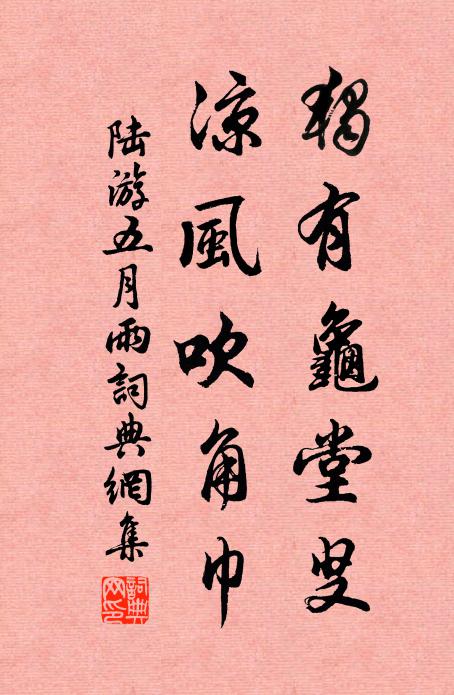 獨有龜堂叟
涼風吹角巾
陆游五月雨詞典網集
詞典網印